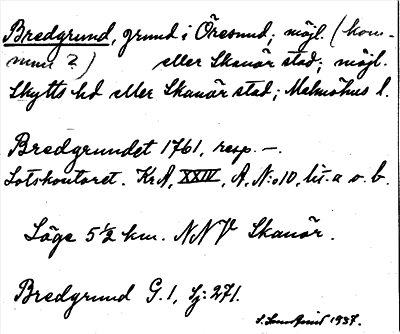 Bredgrund, grund i Öresund; möjl. (kom-
mun?) eller Skanör stad; möjl.
Skytts hd eller Skanör stad; Malmöhus l.
Bredgrundet 1761, resp. —.
Lotskontoret. KrA, XXIV, A, N:o 10, lit. a o. b.
Läge 5 1/2 km. NNV Skanör.
Bredgrund G. 1, Sj: 271.
1937.